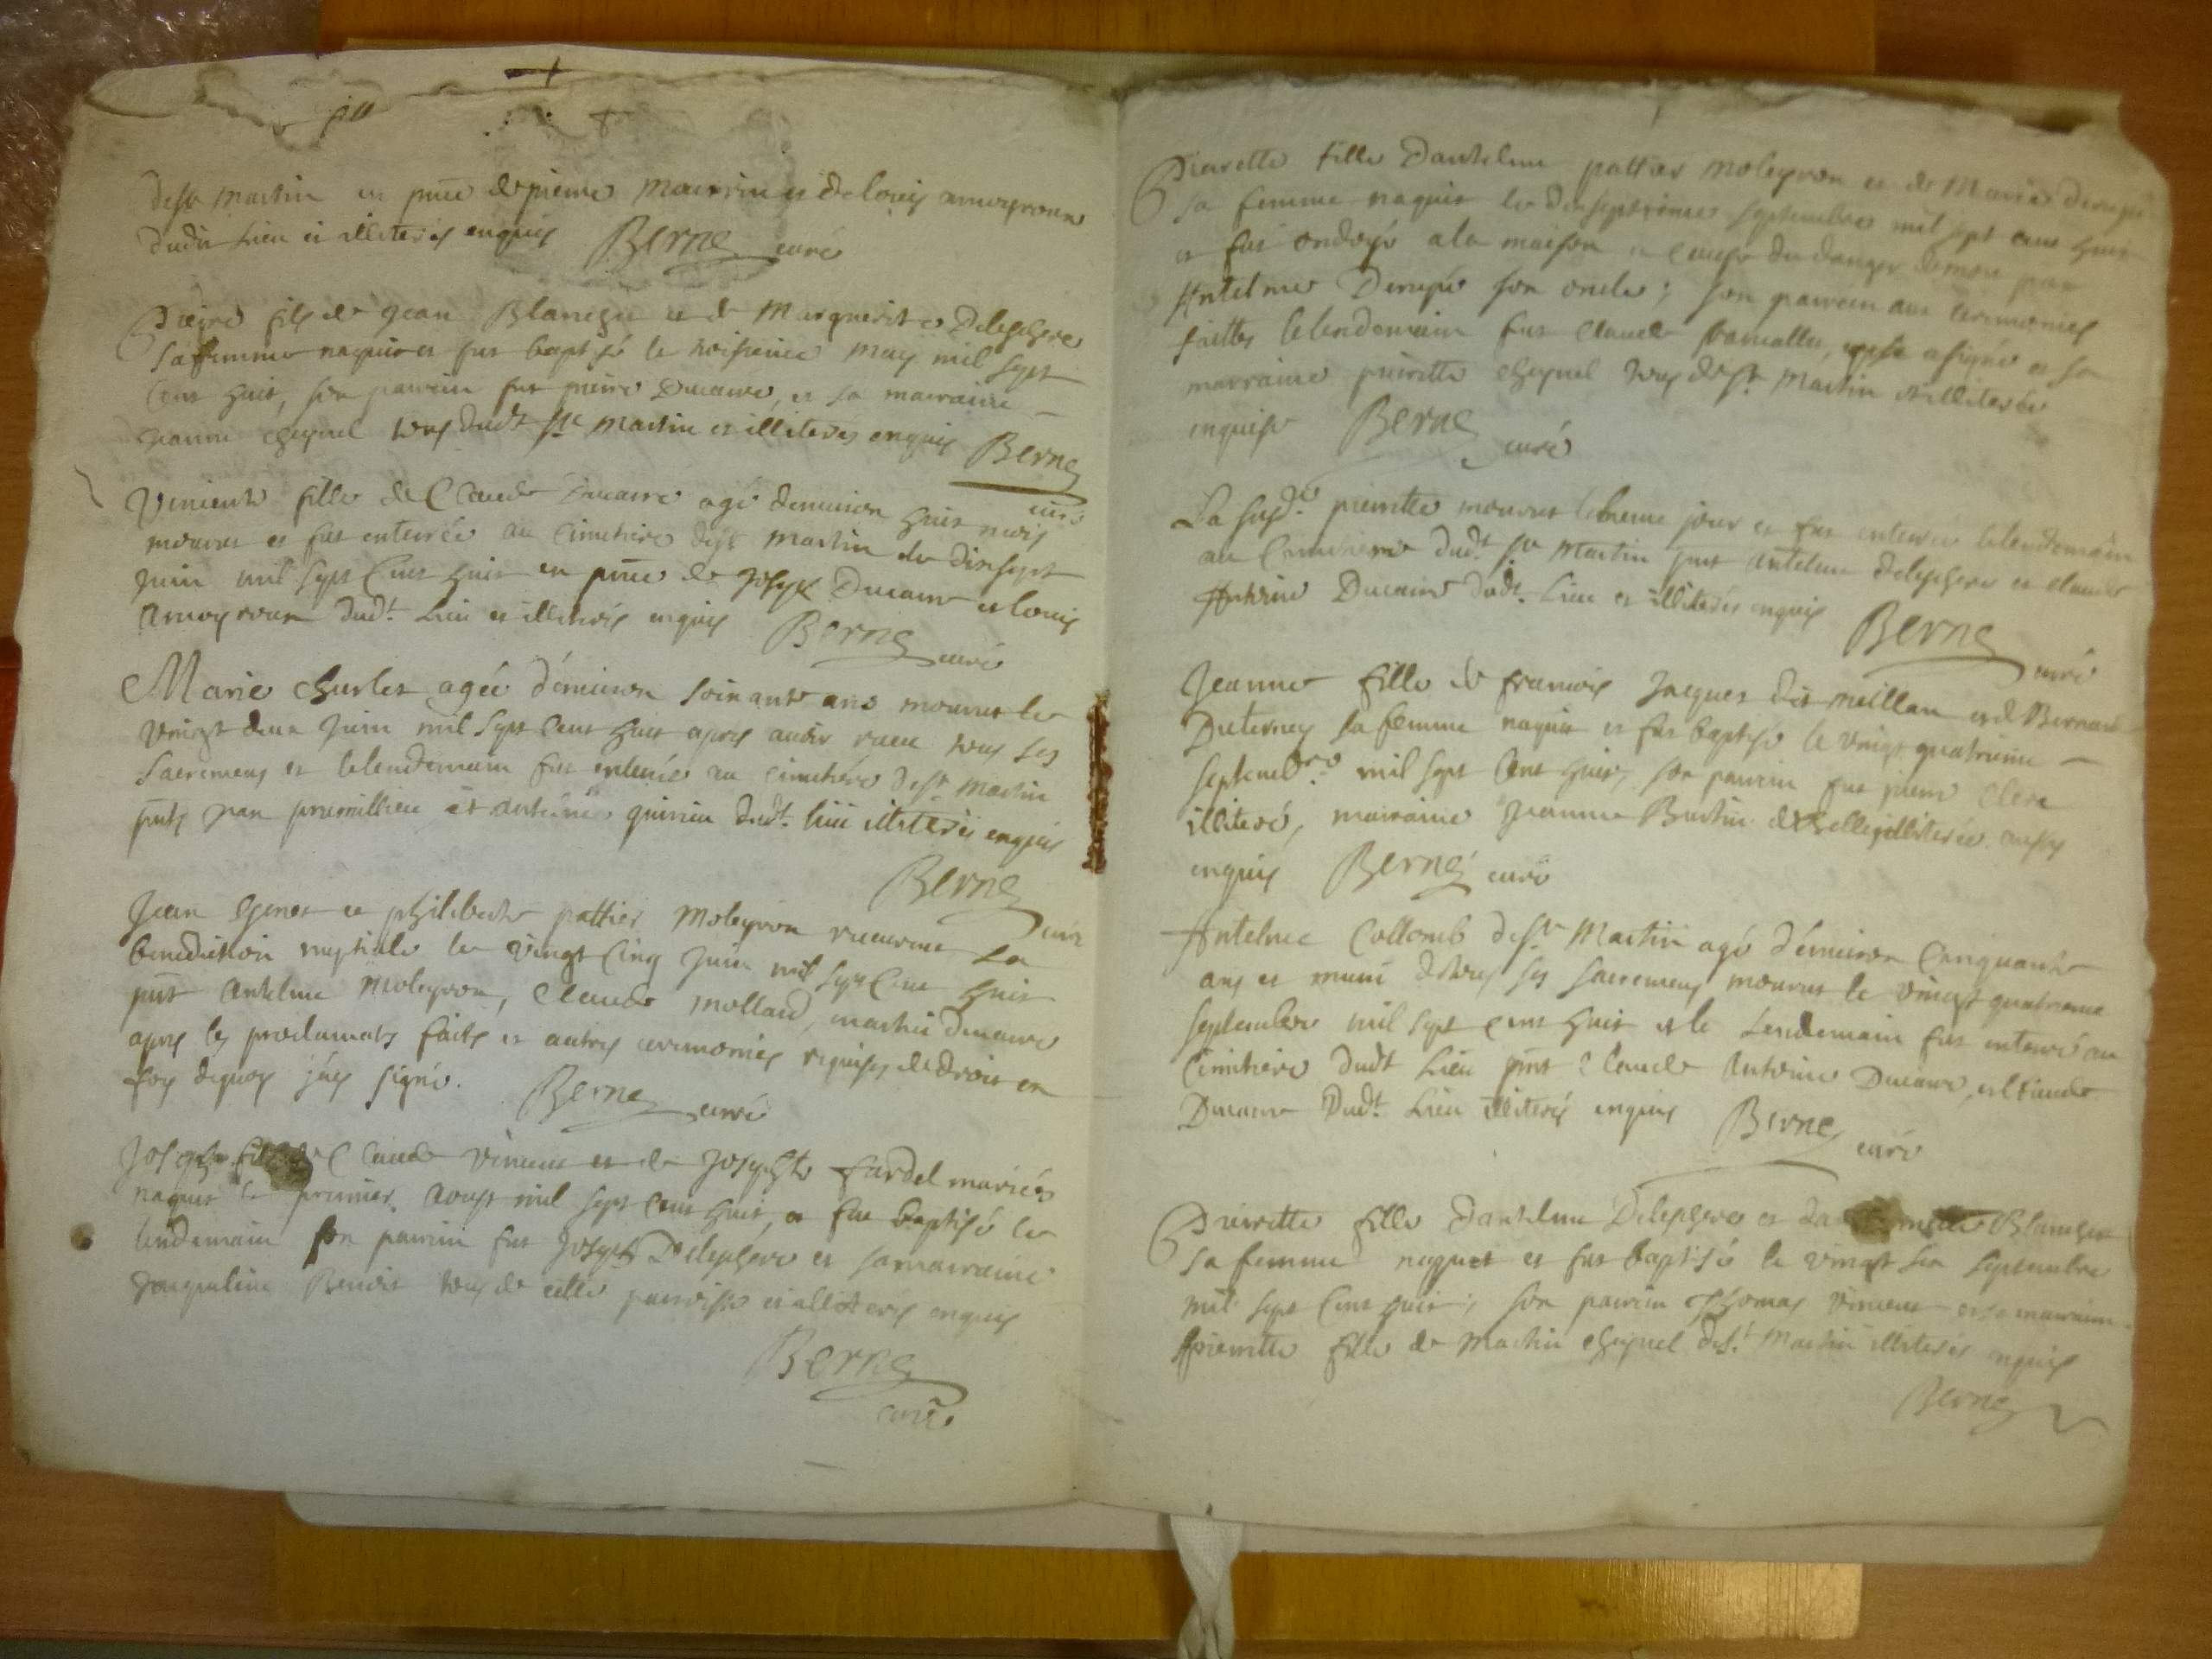 de st martin en pnce de pierre Maurin et de louis
dudit Lieu et illiterés enquis Berne curé
Pierre fils de Jean Blanchet et de Marguerite Delephere
sa femme naquit et fut baptisé le troisieme may mil sept
cent huit, son parrin fut pierre Ducaire, et sa marraine
jeanne cheynel tous dudt st martin et illiterés enquis Berne
curé
Vincente fille de Claude Ducaire agé denviron huit mois
mourut et fut enterrée au Cimetiere de st martin le dixsept
Juin mil sept Cent huit en pnce de Joseph Ducaire et louis
dudt. Lieu et illiterés enquis Berne curé
Marie Charlet agée d'environ soixante ans mourut le
Vingt deux Juin mil sept Cent huit apres avoir receu tous ses
Sacremens et le lendemain fut enterrée au cimetiére de st martin
pnts jean et dudt. lieu illiterés enquis
Berne curé
Jean Genet et philiberte pattier Moleyron receurent La
benediction nuptiale le Vingt Cinq Juin mil sept Cent huit
pnt Antelme Moleyron, Claude mollard, martin Ducaire
apres les proclamats faits et autres ceremonies requises de droit en
foy dequoy j'ay signé. Berne curé
Joseph fils de Claude Vincent et de Josephte fardel mariés
naquit le premier Aoust mil sept Cent huit, et fut baptisé le
lendemain son parrin fut Joseph Delephere et sa marraine
Jacqueline Benoit tous de cette parroisse et illiterés enquis
Berne
curé
Pierrette fille Dantelme pattier Moleyron et de Marie
sa femme naquit le dixseptieme septembre mil sept cent huit
et fut ondoyé a la maison a Cause du danger de mort par
Antelme son oncle; son parrein aux ceremonies
faittes le lendemain fut Claude a signé et sa
marraine pierrette cheynel tous de st. Martin et illiterée
enquise Berne curé
La susd.e pierrette mourut le meme jour et fut enterrée le lendemain
au Cimetiere dudt. st Martin pnt Antelme delephere et claude
Antoine Ducaire dudt. Lieu et illiterés enquis Berne curé
Jeanne fille de francois Jacques dit meillan et de Bernarde
sa femme naquit et fut baptisé le vingt quatrieme
septembre mil sept Cent huit, son parrin fut pierre Clerc
illiteré, marraine Jeanne illiterée aussy
enquis Berne curé
Antelme Collomb de st Martin agé d'environ Cinquante
ans et muni de tous ses sacremens mourut le vingt quatrieme
septembre mil sept cent huit et le Lendemain fut enterré au
Cimetiere dudt Lieu pnt Claude Antoine Ducaire, et Claude
Ducaire dudt. Lieu illiterés enquis Berne curé
Pierrette fille Dantelme Delephere et Blanchet
sa femme naquit et fut baptisé le vingt six septembre
mil sept Cent huit; son parrin Thomas Vincent et sa marraine
pierrette fille de Martin cheynel de st. Martin illiterés enquis
Berne